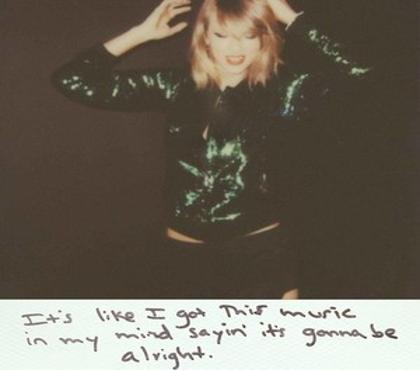 It's like I got This music
in my mind sayin' it's gonna be
alright.